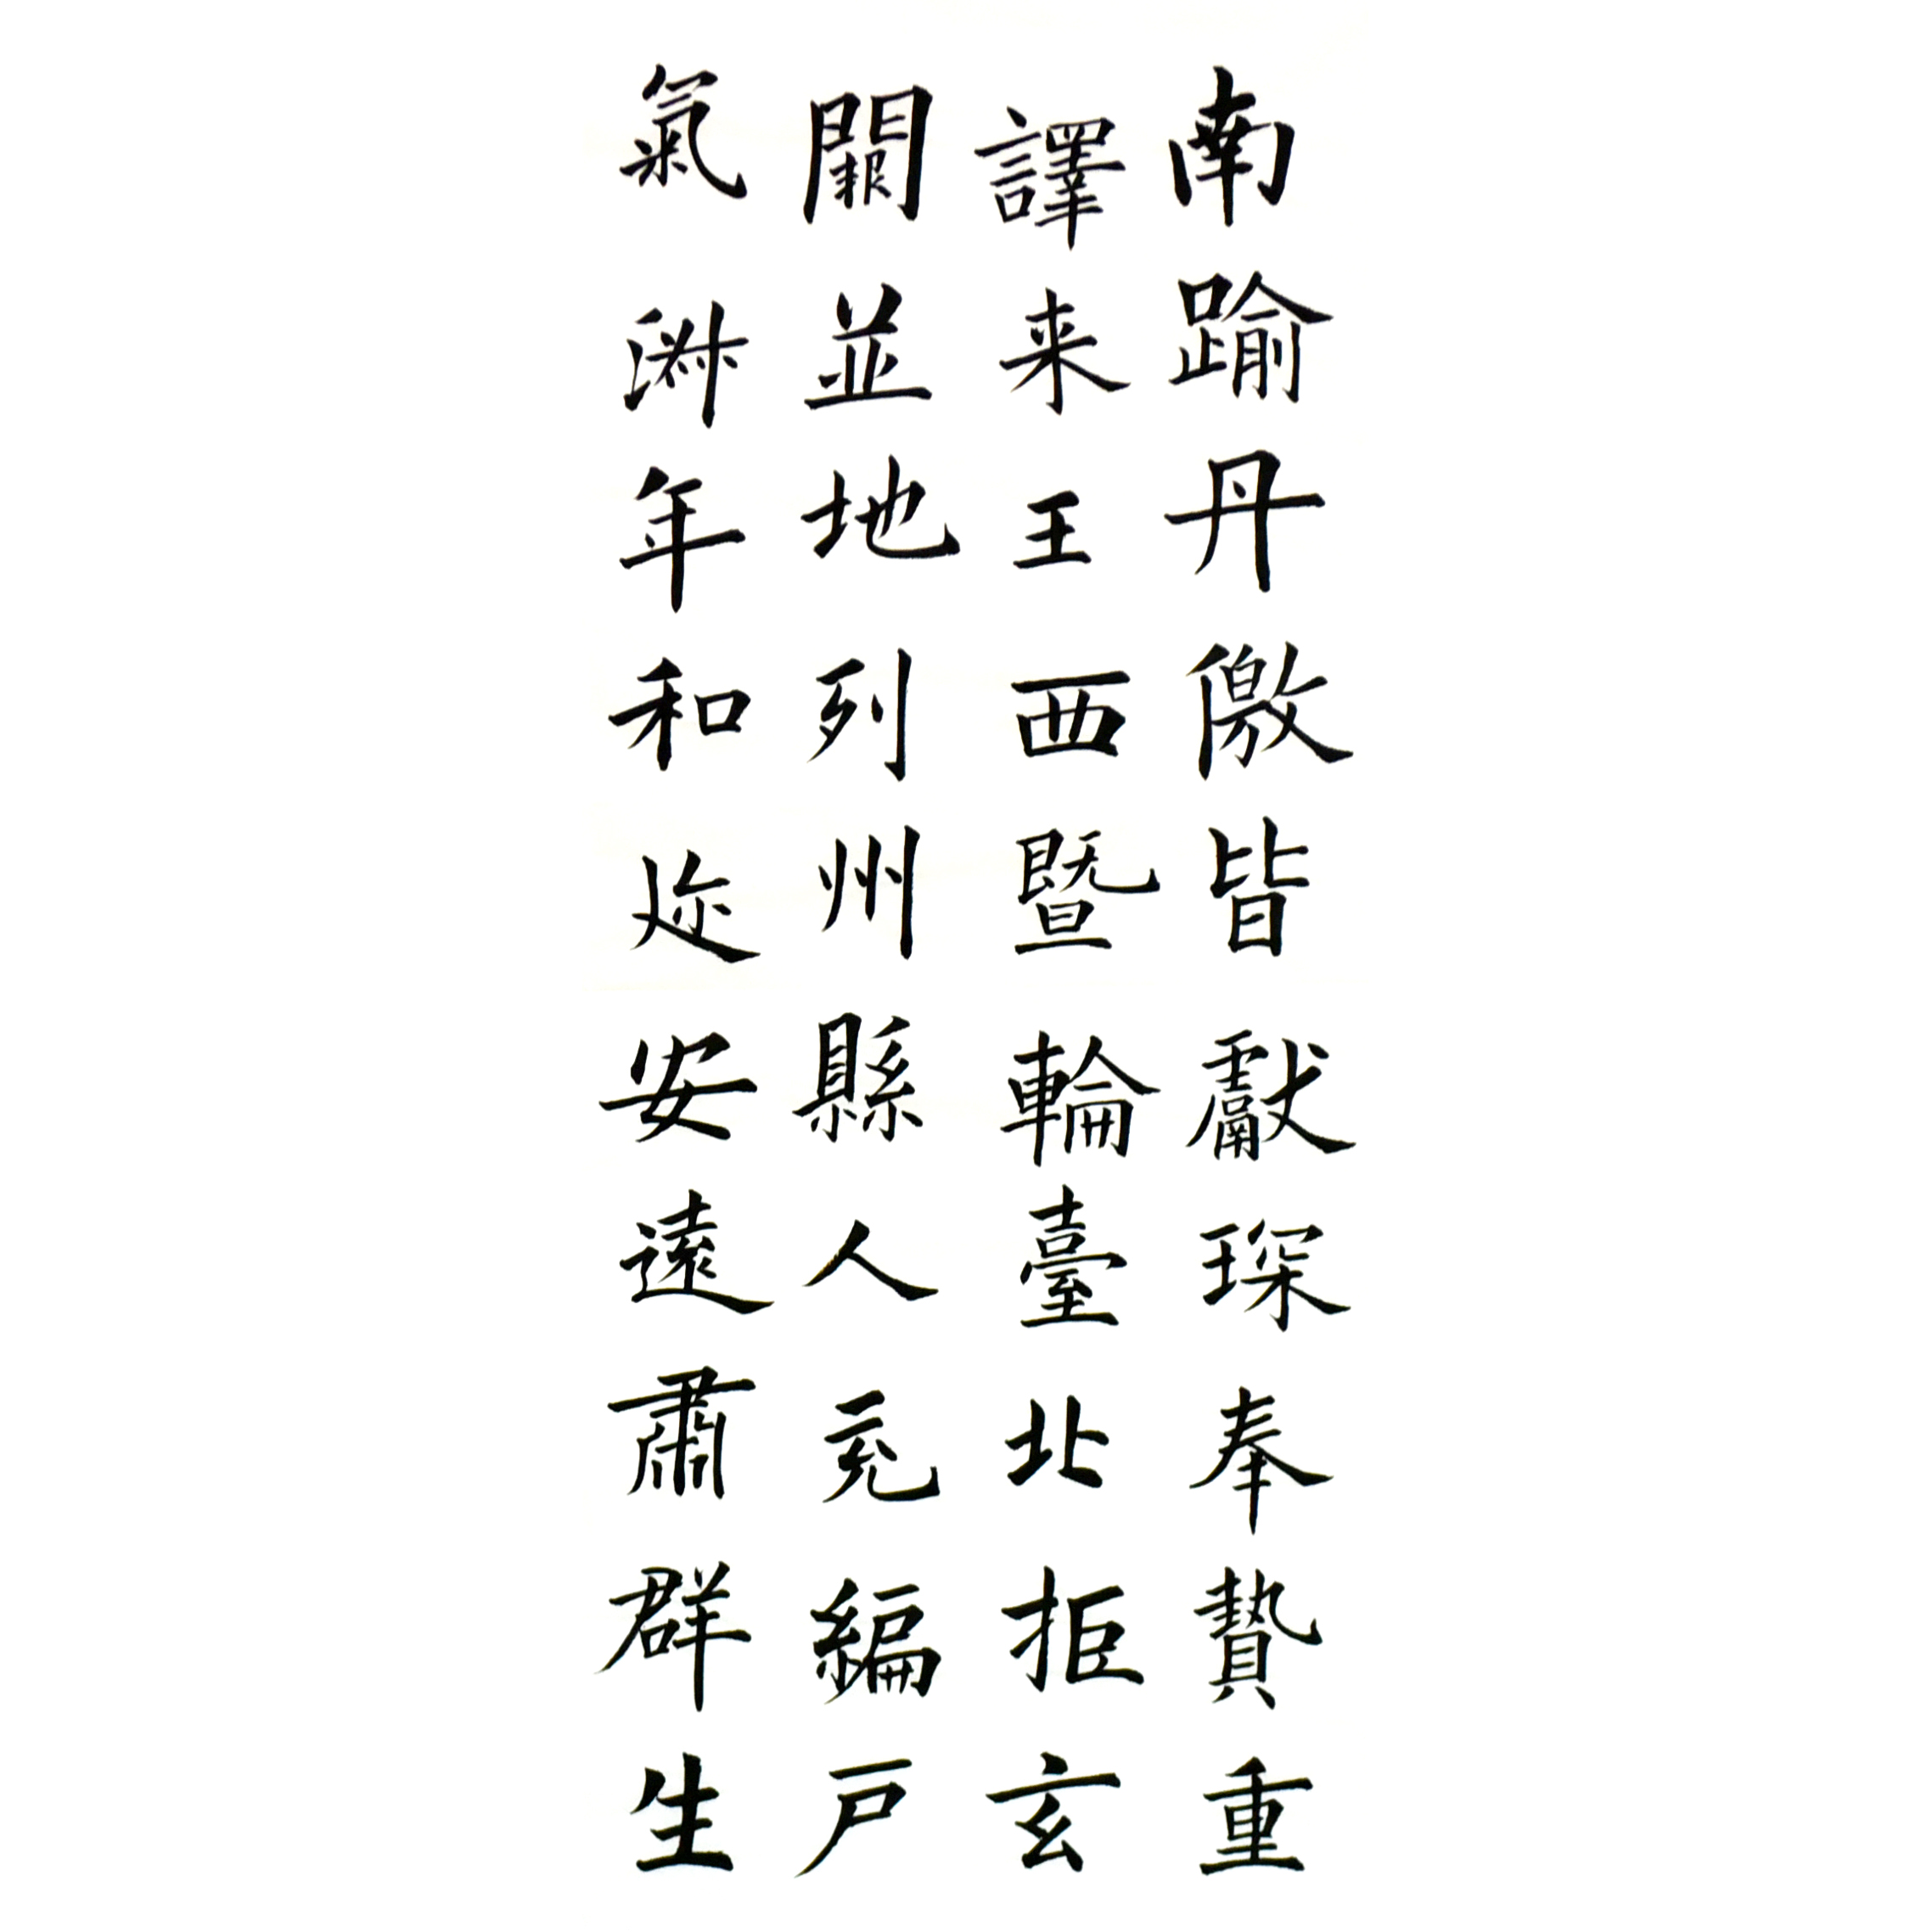 南踰丹徼皆獻琛奉贄重
譯来王西暨輪臺北拒玄
闕並地列州縣人充編戸
氣淋年和迩安遠肅群生